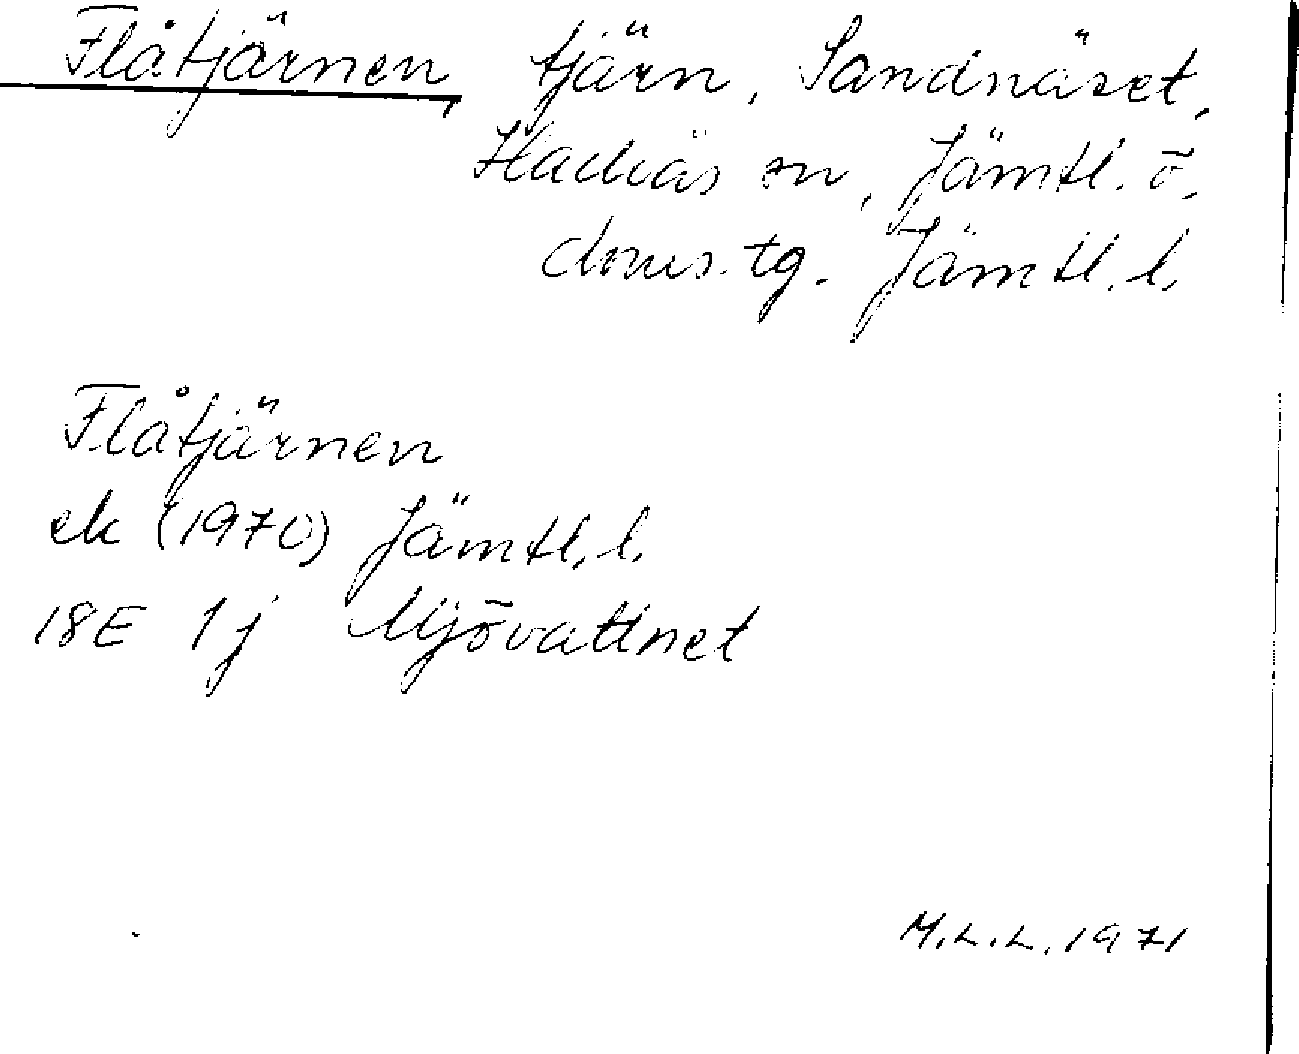 Flåtjärnen, tjärn, Sandnäset,
Hackås sn, Jämtl. ö.
doms. tg. Jämtl. l.
Flåtjärnen
ek (1970) Jämtl. l.
18E 1j Mjövattnet
M.L.L. 1971